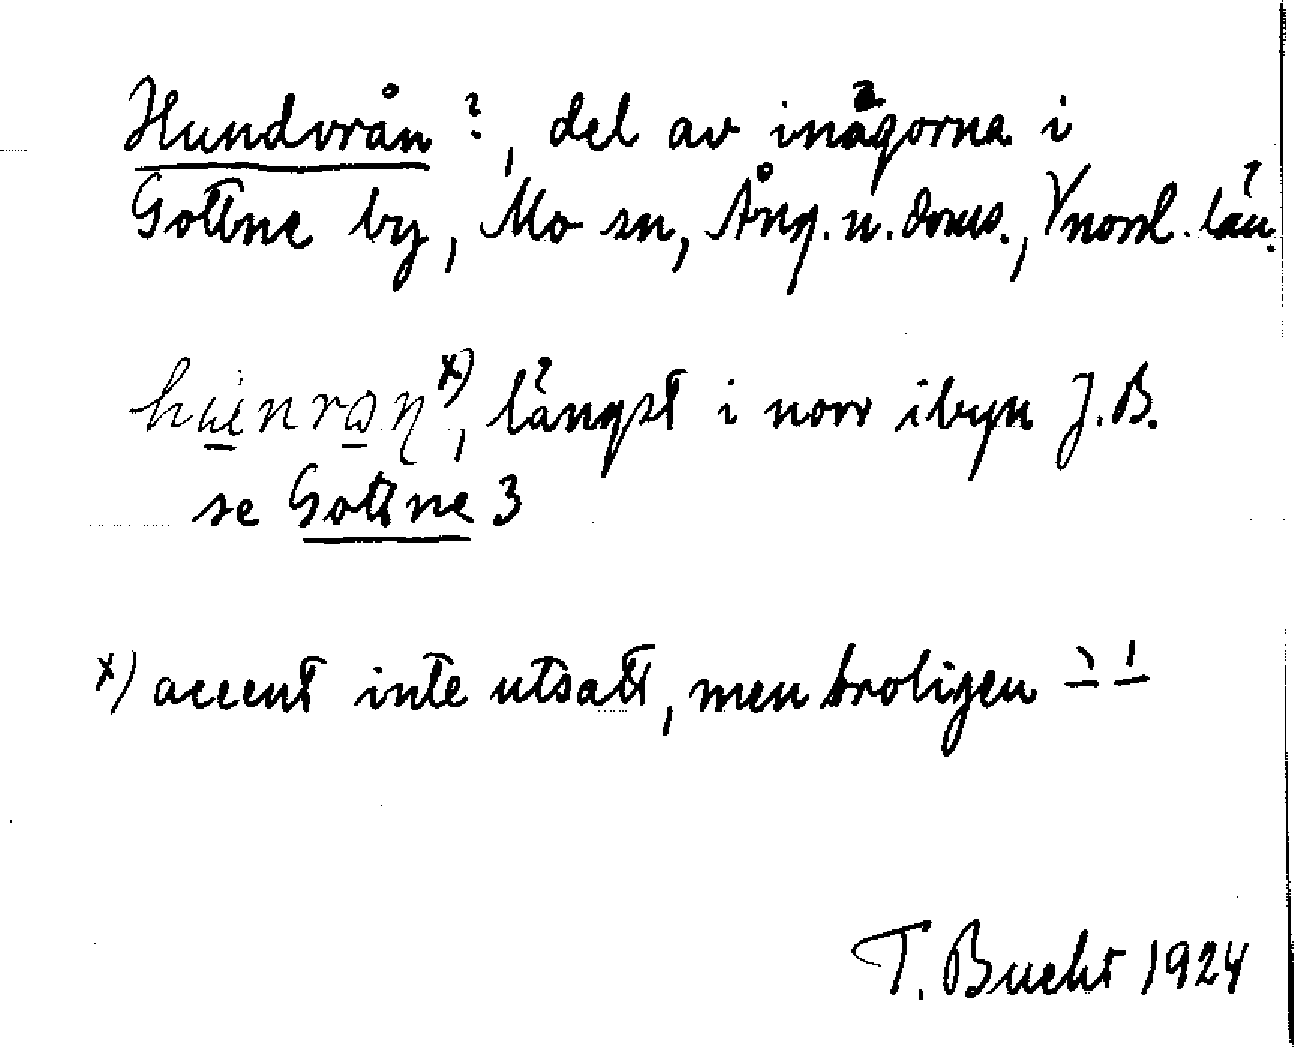 Hundvrån?, del av inägorna i
Gottne by, Mo sn, Ång. n. doms., Vnorrl. län.
längst i norr i byn J.B.
se Gottne 3
x) accent inte utsatt, men troligen
T. Bucht 1924